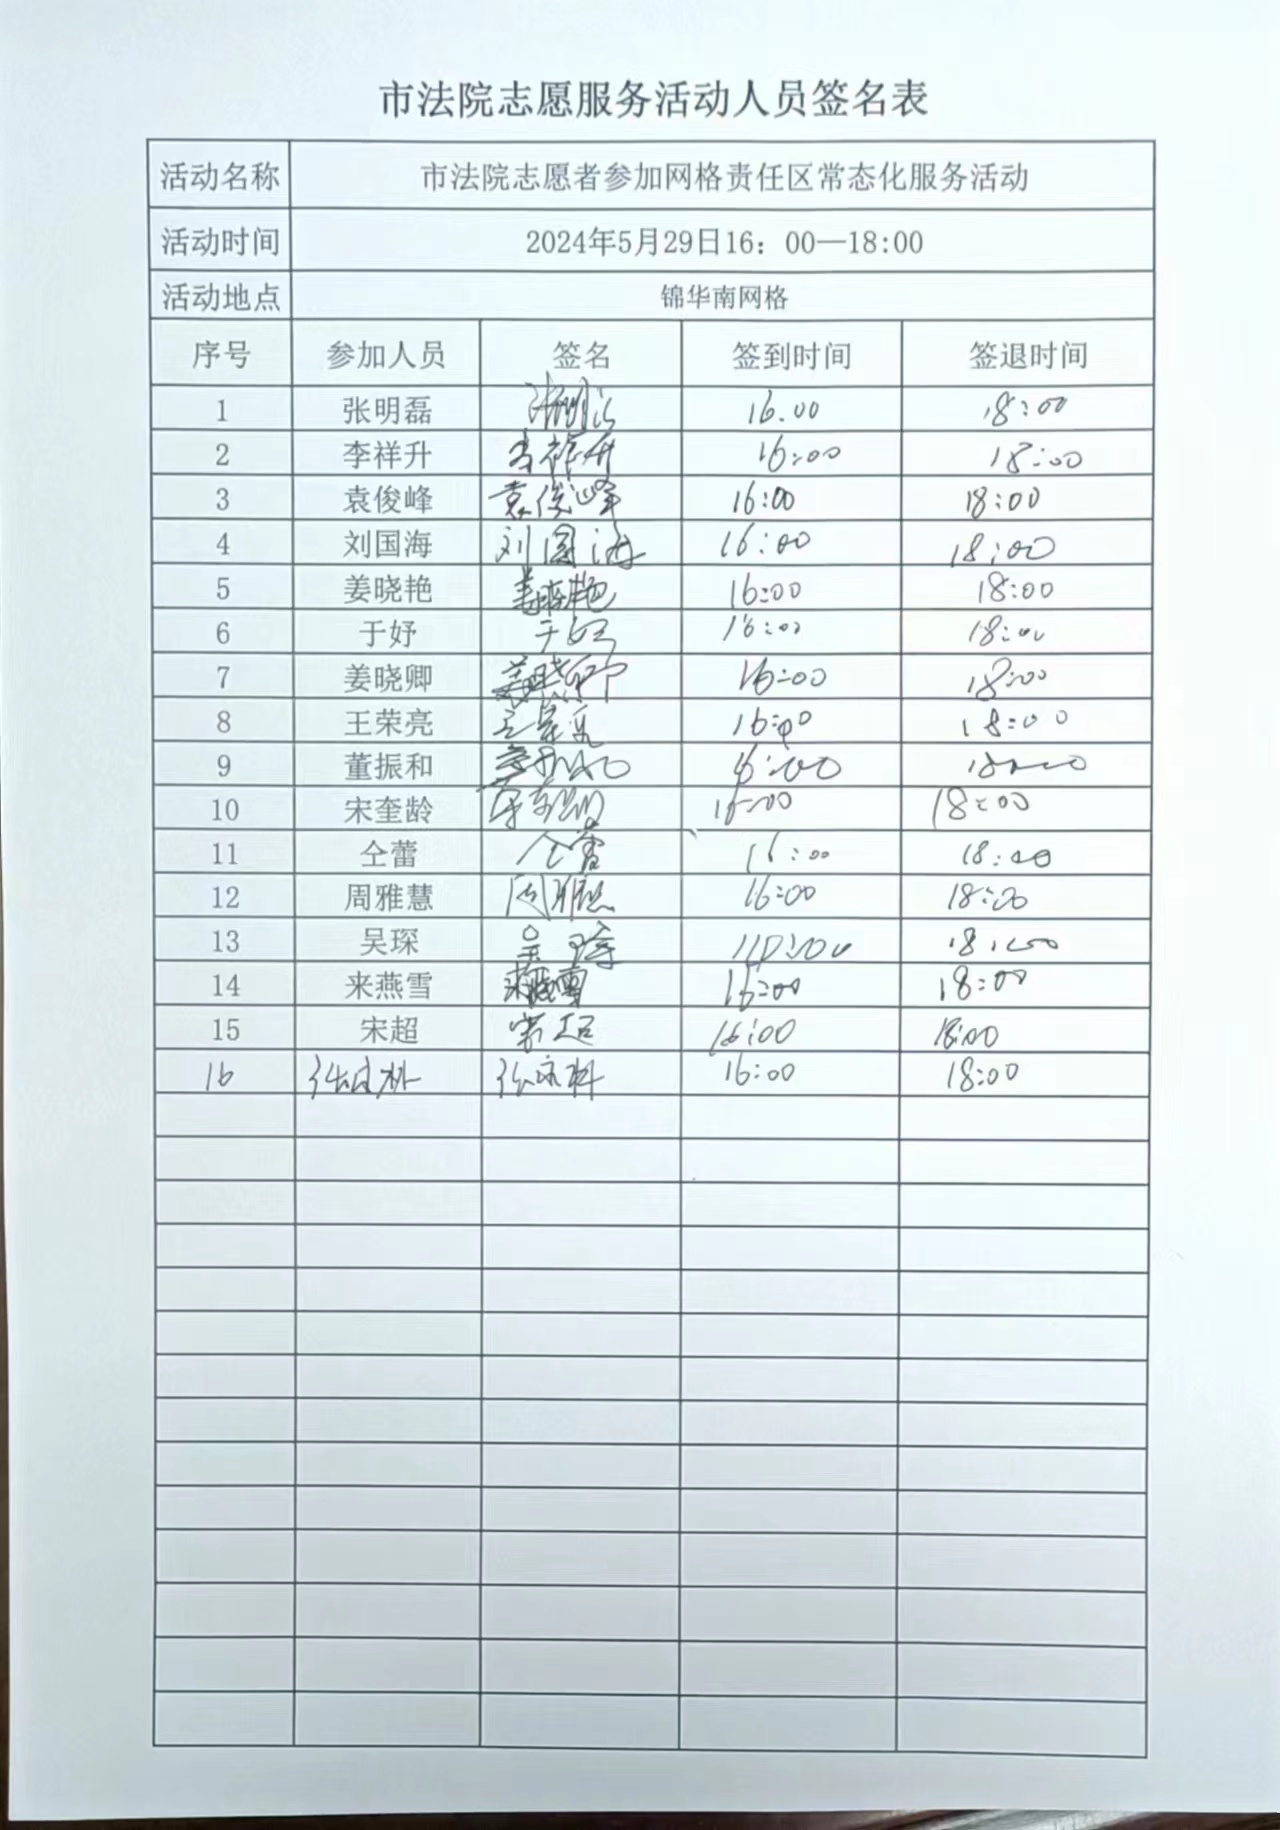 市法院志愿服务活动人员签名表
活动名称 市法院志愿者参加网格责任区常态化服务活动
活动时间 2024年5月29日16：00—18:00
活动地点 锦华南网格
序号 参加人员 签名 签到时间 签退时间
1 张明磊 16.00 18:00
2 李祥升 李祥升 16:00 18:00
3 袁俊峰 袁俊峰 16:00 18:00
4 刘国海 刘国海 16:00 18:00
5 姜晓艳 姜晓艳 16:00 18:00
6 于妤 于妤 16:00 18:00
7 姜晓卿 姜晓卿 16:00 18:00
8 王荣亮 王荣亮 16:00 18:00
9 董振和 董振和 16:00 18:00
10 宋奎龄 宋奎龄 16:00 18:00
11 仝蕾 仝蕾 16:00 18:00
12 周雅慧 周雅慧 16:00 18:00
13 吴琛 吴琛 18:00
14 来燕雪 来燕雪 16:00 18:00
15 宋超 宋超 16:00 18:00
16 16:00 18:00